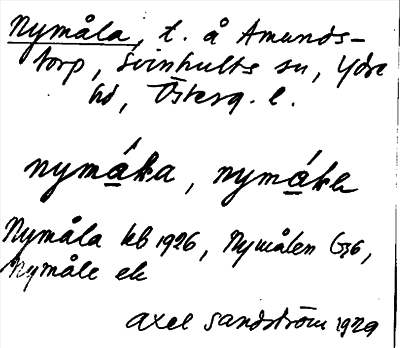 Nymåla, t. å Amunds-
torp, Svinhults sn, Ydre
hd, Österg. l.
nymǻka, nymǻkɐ
Nymåla kb 1926, Nymålen G36,
Nymåle ek
Axel Sandström 1929